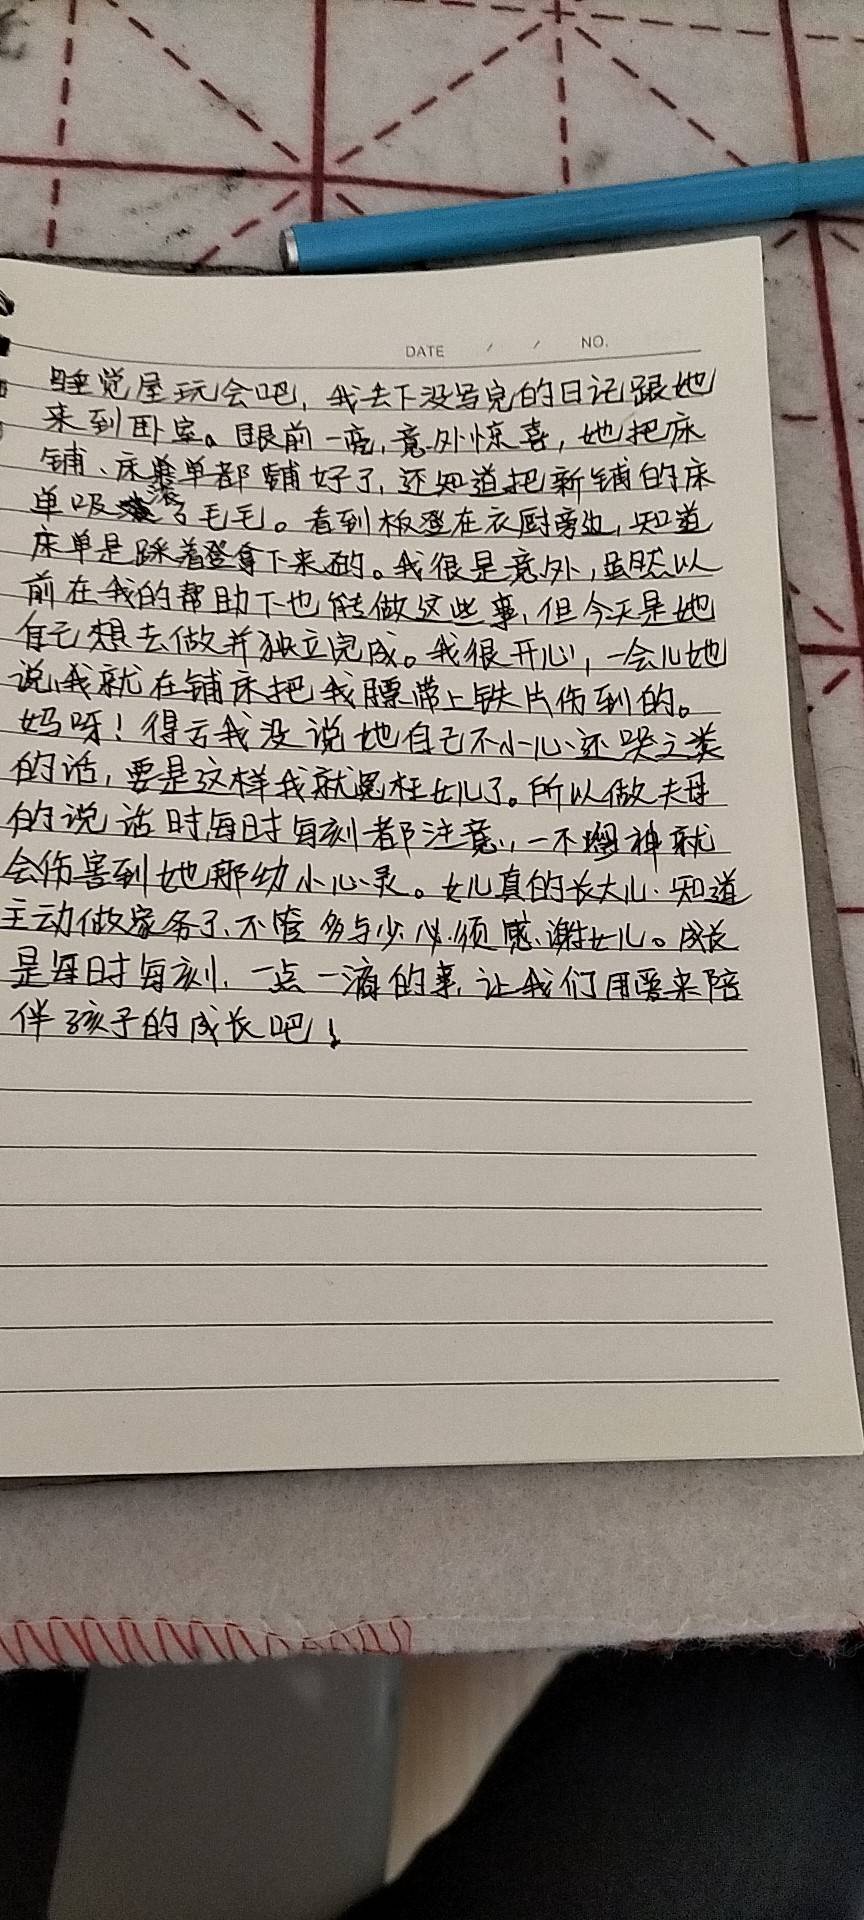 DATE / / NO.
睡觉屋玩会吧，我去下没写完的日记跟她
来到卧室。眼前一亮，意外惊喜，她把床
铺、床单都铺好了，还知道把新铺的床
单吸滚了毛毛。看到板凳在衣厨旁边，知道
床单是踩着登拿下来的。我很是意外，虽然以
前在我的帮助下也能做这些事，但今天是她
自己想去做并独立完成。我很开心，一会儿她
说，我就在铺床把我腰带上铁片伤到的。
妈呀！得亏我没说她自己不小心还哭之类
的话，要是这样我就冤枉女儿了。所以做父母
的说话时，每时每刻都注意，一不留神就
会伤害到她那幼小心灵。女儿真的长大儿，知道
主动做家务了，不管多与少必须感谢女儿。成长
是每时每刻，一点一滴的事，让我们用爱来陪
伴孩子的成长吧！